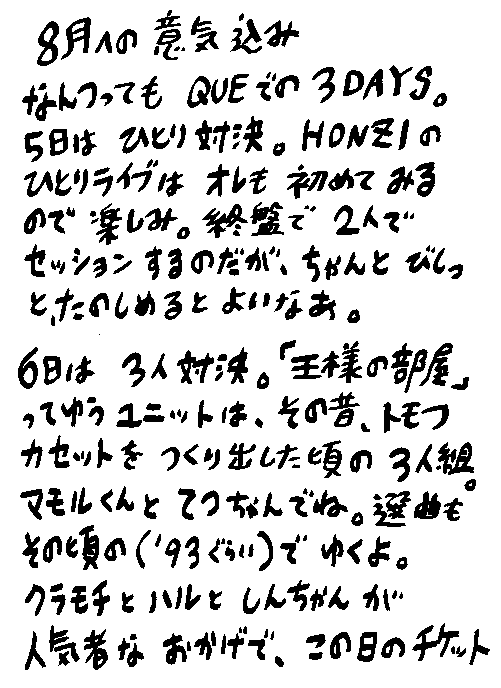 8月への意気込み
なんつっても QUEでの 3DAYS。
5日は ひとり対決。HONZIの
ひとりライブは オレも 初めて みる
ので 楽しみ。終盤で 2人で
セッション するのだが、ちゃんと びしっ
と、たのしめると よいなあ。
6日は 3人対決。「王様の部屋」
ってゆう ユニットは、その昔、トモフ
カセットを つくり出した頃の 3人組。
マモルくんと てつちゃんでね。選曲も
その頃の('93ぐらい)で ゆくよ。
クラモチと ハルと しんちゃん が
人気者な おかげで、この日のチケット